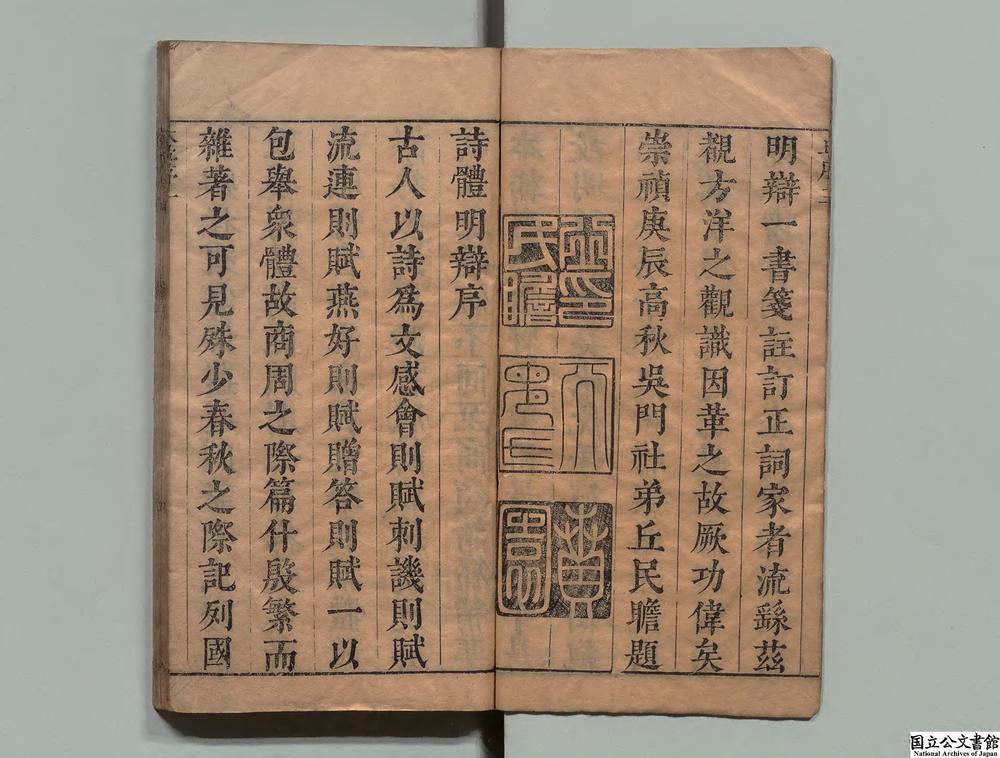 明辯一書箋註訂正詞家者流繇茲
觀方洋之觀識因革之故厥功偉矣
崇禎庚辰高秋吳門社弟丘民瞻題
詩體明辯序
古人以詩爲文感會則賦刺譏則賦
流連則賦燕好則賦贈答則賦一以
包舉衆體故商周之際篇什殷繁而
雜著之可見殊少春秋之際記列國
国立公文書館
National Archives of Japan